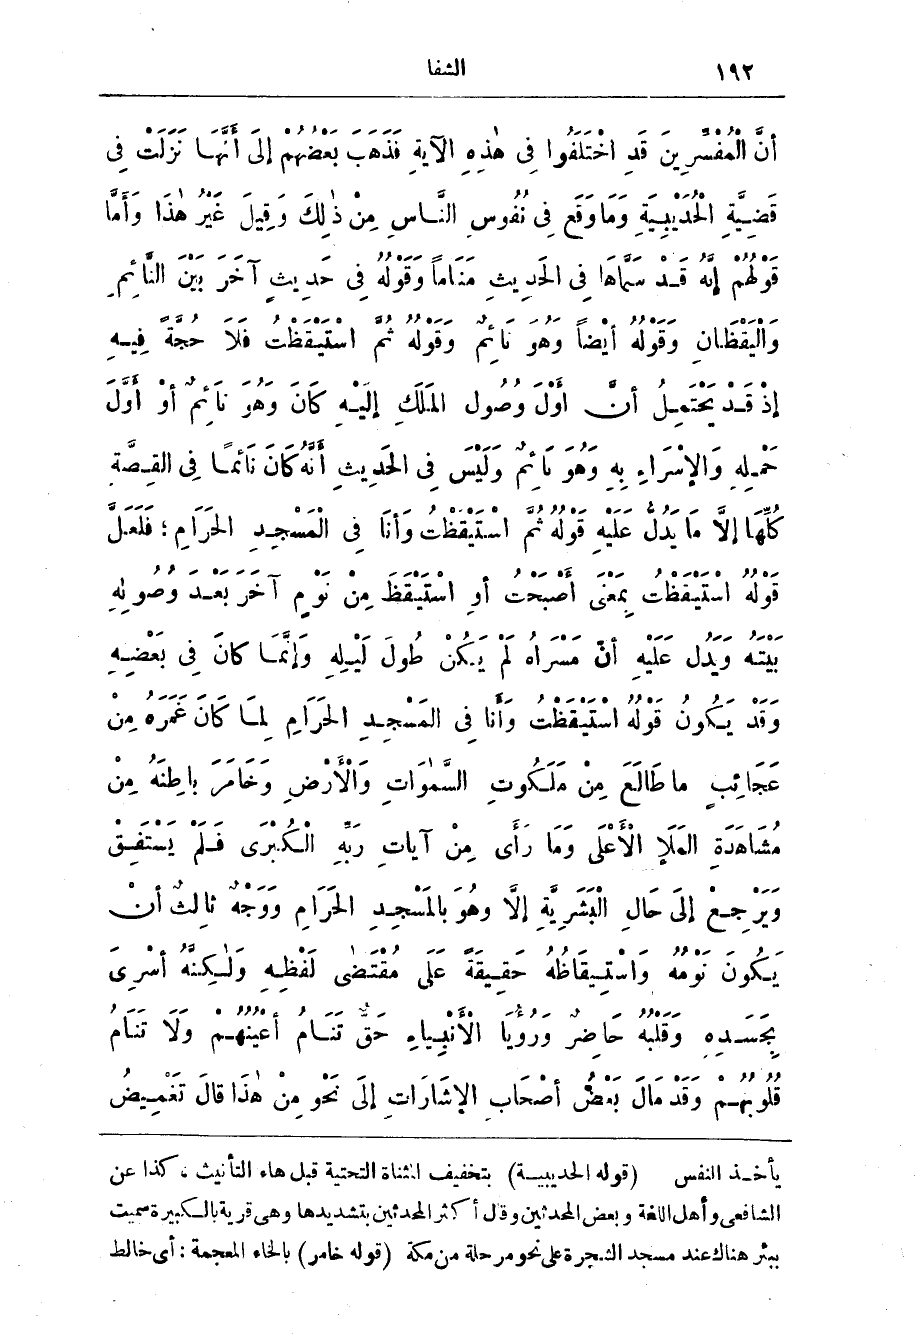 ١٩٢ الشفا
أَنَّ الْمُفَسِّرِينَ قَدِ اخْتَلَفُوا فِى هٰذِهِ الآيَةِ فَذَهَبَ بَعْضُهُمْ إِلَى أَنَّهَا نَزَلَتْ فِى
قَضِيَّةِ الْحُدَيْبِيَةِ وَمَا وَقَعَ فِى نُفُوسِ النَّاسِ مِنْ ذٰلِكَ وَقِيلَ غَيْرُ هٰذَا وَأَمَّا
قَوْلُهُمْ إِنَّهُ قَدْ سَمَّاهَا فِى الحَدِيثِ مَنَاماً وَقَوْلُهُ فِى حَدِيثٍ آخَرَ بَيْنَ النَّائِمِ
وَالْيَقْظَانِ وَقَوْلُهُ أَيْضاً وَهُوَ نَائِمٌ وَقَوْلُهُ ثُمَّ اسْتَيْقَظْتُ فَلَا حُجَّةَ فِيهِ
إِذْ قَدْ يَحْتَمِلُ أَنَّ أَوَّلَ وُصُولِ المَلَكِ إِلَيْهِ كَانَ وَهُوَ نَائِمٌ أَوْ أَوَّلَ
حَمْلِهِ وَالإِسْرَاءِ بِهِ وَهُوَ نَائِمٌ وَلَيْسَ فِى الحَدِيثِ أَنَّهُ كَانَ نَائِمًا فِى القِصَّةِ
كُلِّهَا إِلَّا مَا يَدُلُّ عَلَيْهِ قَوْلُهُ ثُمَّ اسْتَيْقَظْتُ وَأَنَا فِى الْمَسْجِدِ الحَرَامِ ؛ فَلَعَلَّ
قَوْلَهُ اسْتَيْقَظْتُ بِمَعْنَى أَصْبَحْتُ أَوِ اسْتَيْقَظَ مِنْ نَوْمٍ آخَرَ بَعْدَ وُصُولِهِ
بَيْتَهُ وَيَدُلُّ عَلَيْهِ أَنَّ مَسْرَاهُ لَمْ يَكُنْ طُولَ لَيْلِهِ وَإِنَّمَا كَانَ فِى بَعْضِهِ
وَقَدْ يَكُونُ قَوْلُهُ اسْتَيْقَظْتُ وَأَنَا فِى المَسْجِدِ الحَرَامِ لِمَا كَانَ غَمَرَهُ مِنْ
عَجَائِبِ مَا طَالَعَ مِنْ مَلَكُوتِ السَّمٰوَاتِ وَالْأَرْضِ وَخَامَرَ بَاطِنَهُ مِنْ
مُشَاهَدَةِ المَلَإِ الْأَعْلَى وَمَا رَأَى مِنْ آيَاتِ رَبِّهِ الْكُبْرَى فَلَمْ يَسْتَفِقْ
وَيَرْجِعْ إِلَى حَالِ الْبَشَرِيَّةِ إِلَّا وَهُوَ بِالمَسْجِدِ الحَرَامِ وَوَجْهٌ ثَالِثٌ أَنْ
يَكُونَ نَوْمُهُ وَاسْتِيقَاظُهُ حَقِيقَةً عَلَى مُقْتَضٰى لَفْظِهِ وَلٰكِنَّهُ أُسْرِىَ
بِجَسَدِهِ وَقَلْبُهُ حَاضِرٌ وَرُؤْيَا الْأَنْبِيَاءِ حَقٌّ تَنَامُ أَعْيُنُهُمْ وَلَا تَنَامُ
قُلُوبُهُمْ وَقَدْ مَالَ بَعْضُ أَصْحَابِ الإِشَارَاتِ إِلَى نَحْوٍ مِنْ هٰذَا قَالَ تَغْمِيضُ
يأخذ النفس (قوله الحديبية) بتخفيف المثناة التحتية قبل هاء التأنيث ، كذا عن
الشافعى وأهل اللغة وبعض المحدثين وقال أكثر المحدثين بتشديدها وهى قرية بالكبيرة سميت
ببئر هناك عند مسجد الشجرة على نحو مرحلة من مكة (قوله خامر) بالخاء المعجمة : أى خالط